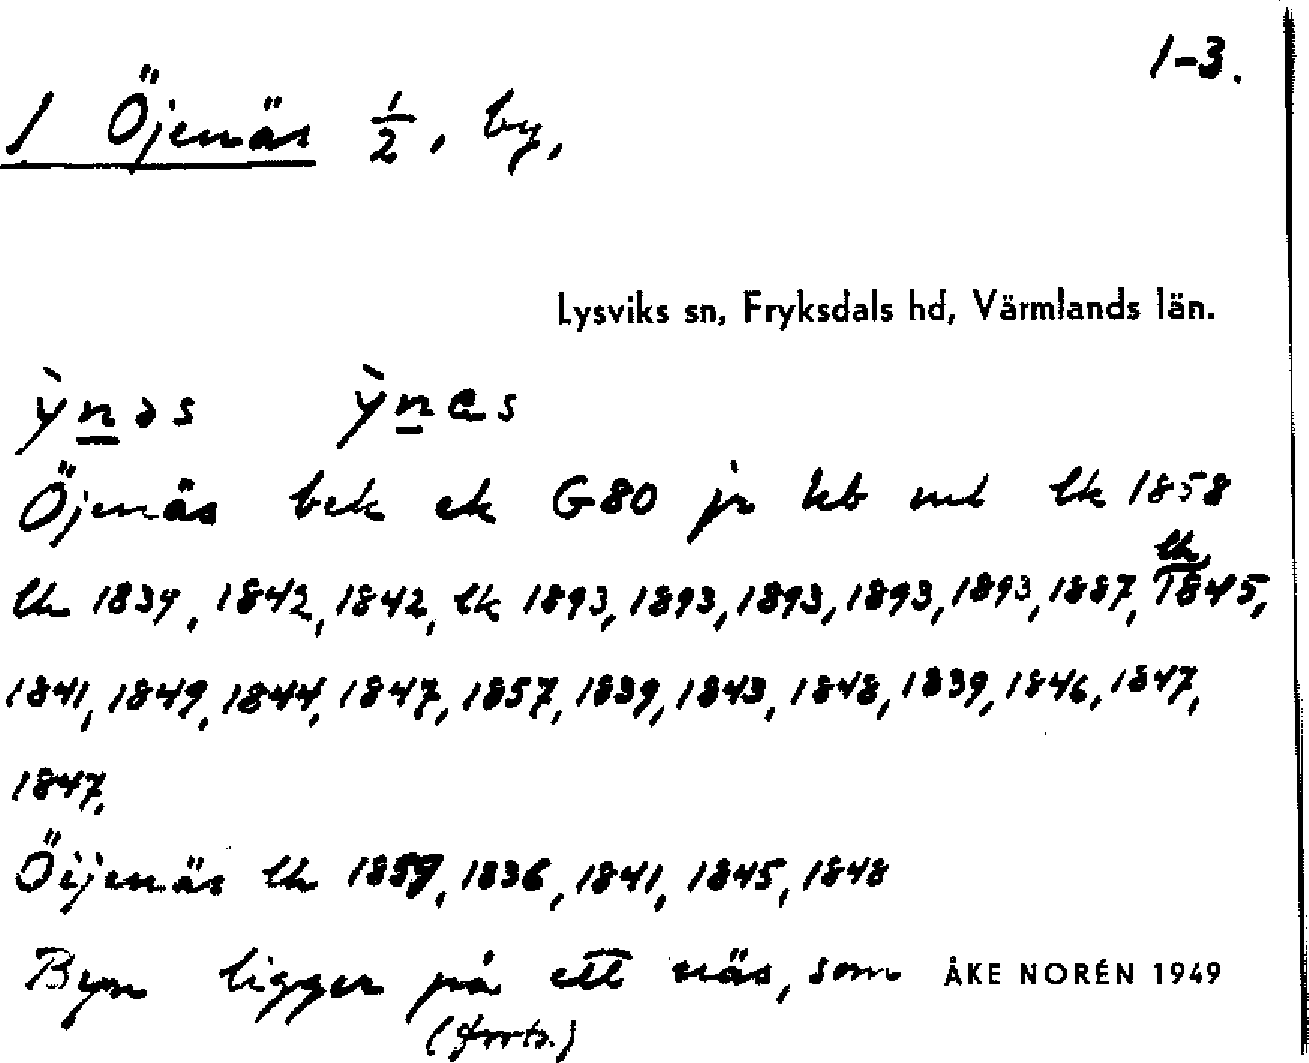 1-3.
1 Öjenäs 1/2, by,
Lysviks sn, Fryksdals hd, Värmlands län.
ỳnəs ỳnas
Öjenäs bek ek G80 jr kb ml lk 1858
lh 1839, 1842, 1842, lk 1893, 1893, 1893, 1893, 1893, 1887, lh 1845,
1841, 1849, 1844, 1847, 1857, 1839, 1843, 1848, 1839, 1846, 1847,
1847,
Öijenäs lh 1859, 1836, 1841, 1845, 1848
Byn ligger på ett näs, som ÅKE NORÉN 1949
(forts.)